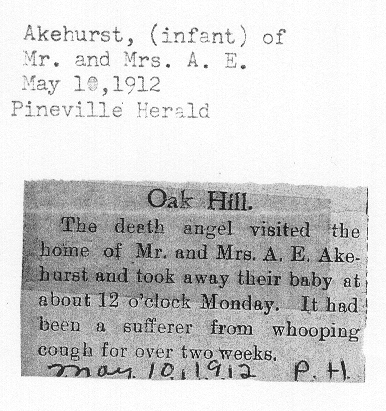 Akehurst, (infant) of
Mr. and Mrs. A. E.
May 10,1912
Pineville Herald
Oak Hill.
The death angel visited the
home of Mr. and Mrs. A. E. Ake-
hurst and took away their baby at
about 12 o'clock Monday. It had
been a sufferer from whooping
cough for over two weeks.
May 10, 1912 P. H.